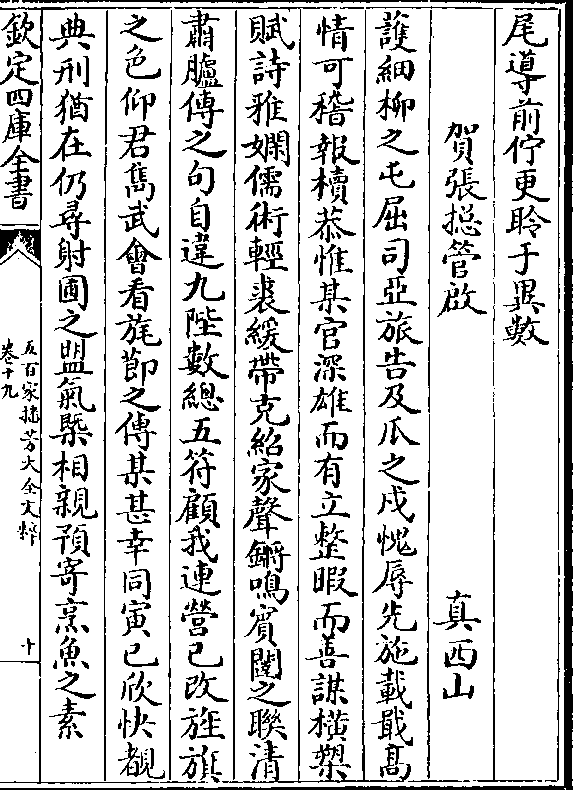 尾導前佇更聆于異數
賀張揔管啟
真西山
䕶細柳之屯屈司亞旅告及瓜之戍愧辱先施載戢髙
情可稽報櫝恭惟某官深雄而有立整暇而善謀橫槊
賦詩雅嫻儒術輕裘緩帶克紹家聲鏘鳴賓閣之聯清
肅臚傳之句自違九陛數總五符顧我連營已改旌旗
之色仰君雋武會看旄節之傳某甚幸同寅已欣快覩
典刑猶在仍尋射圃之盟氣槩相親預寄烹魚之素
欽定四庫全書
五百家播芳大全文粹
卷十九
十